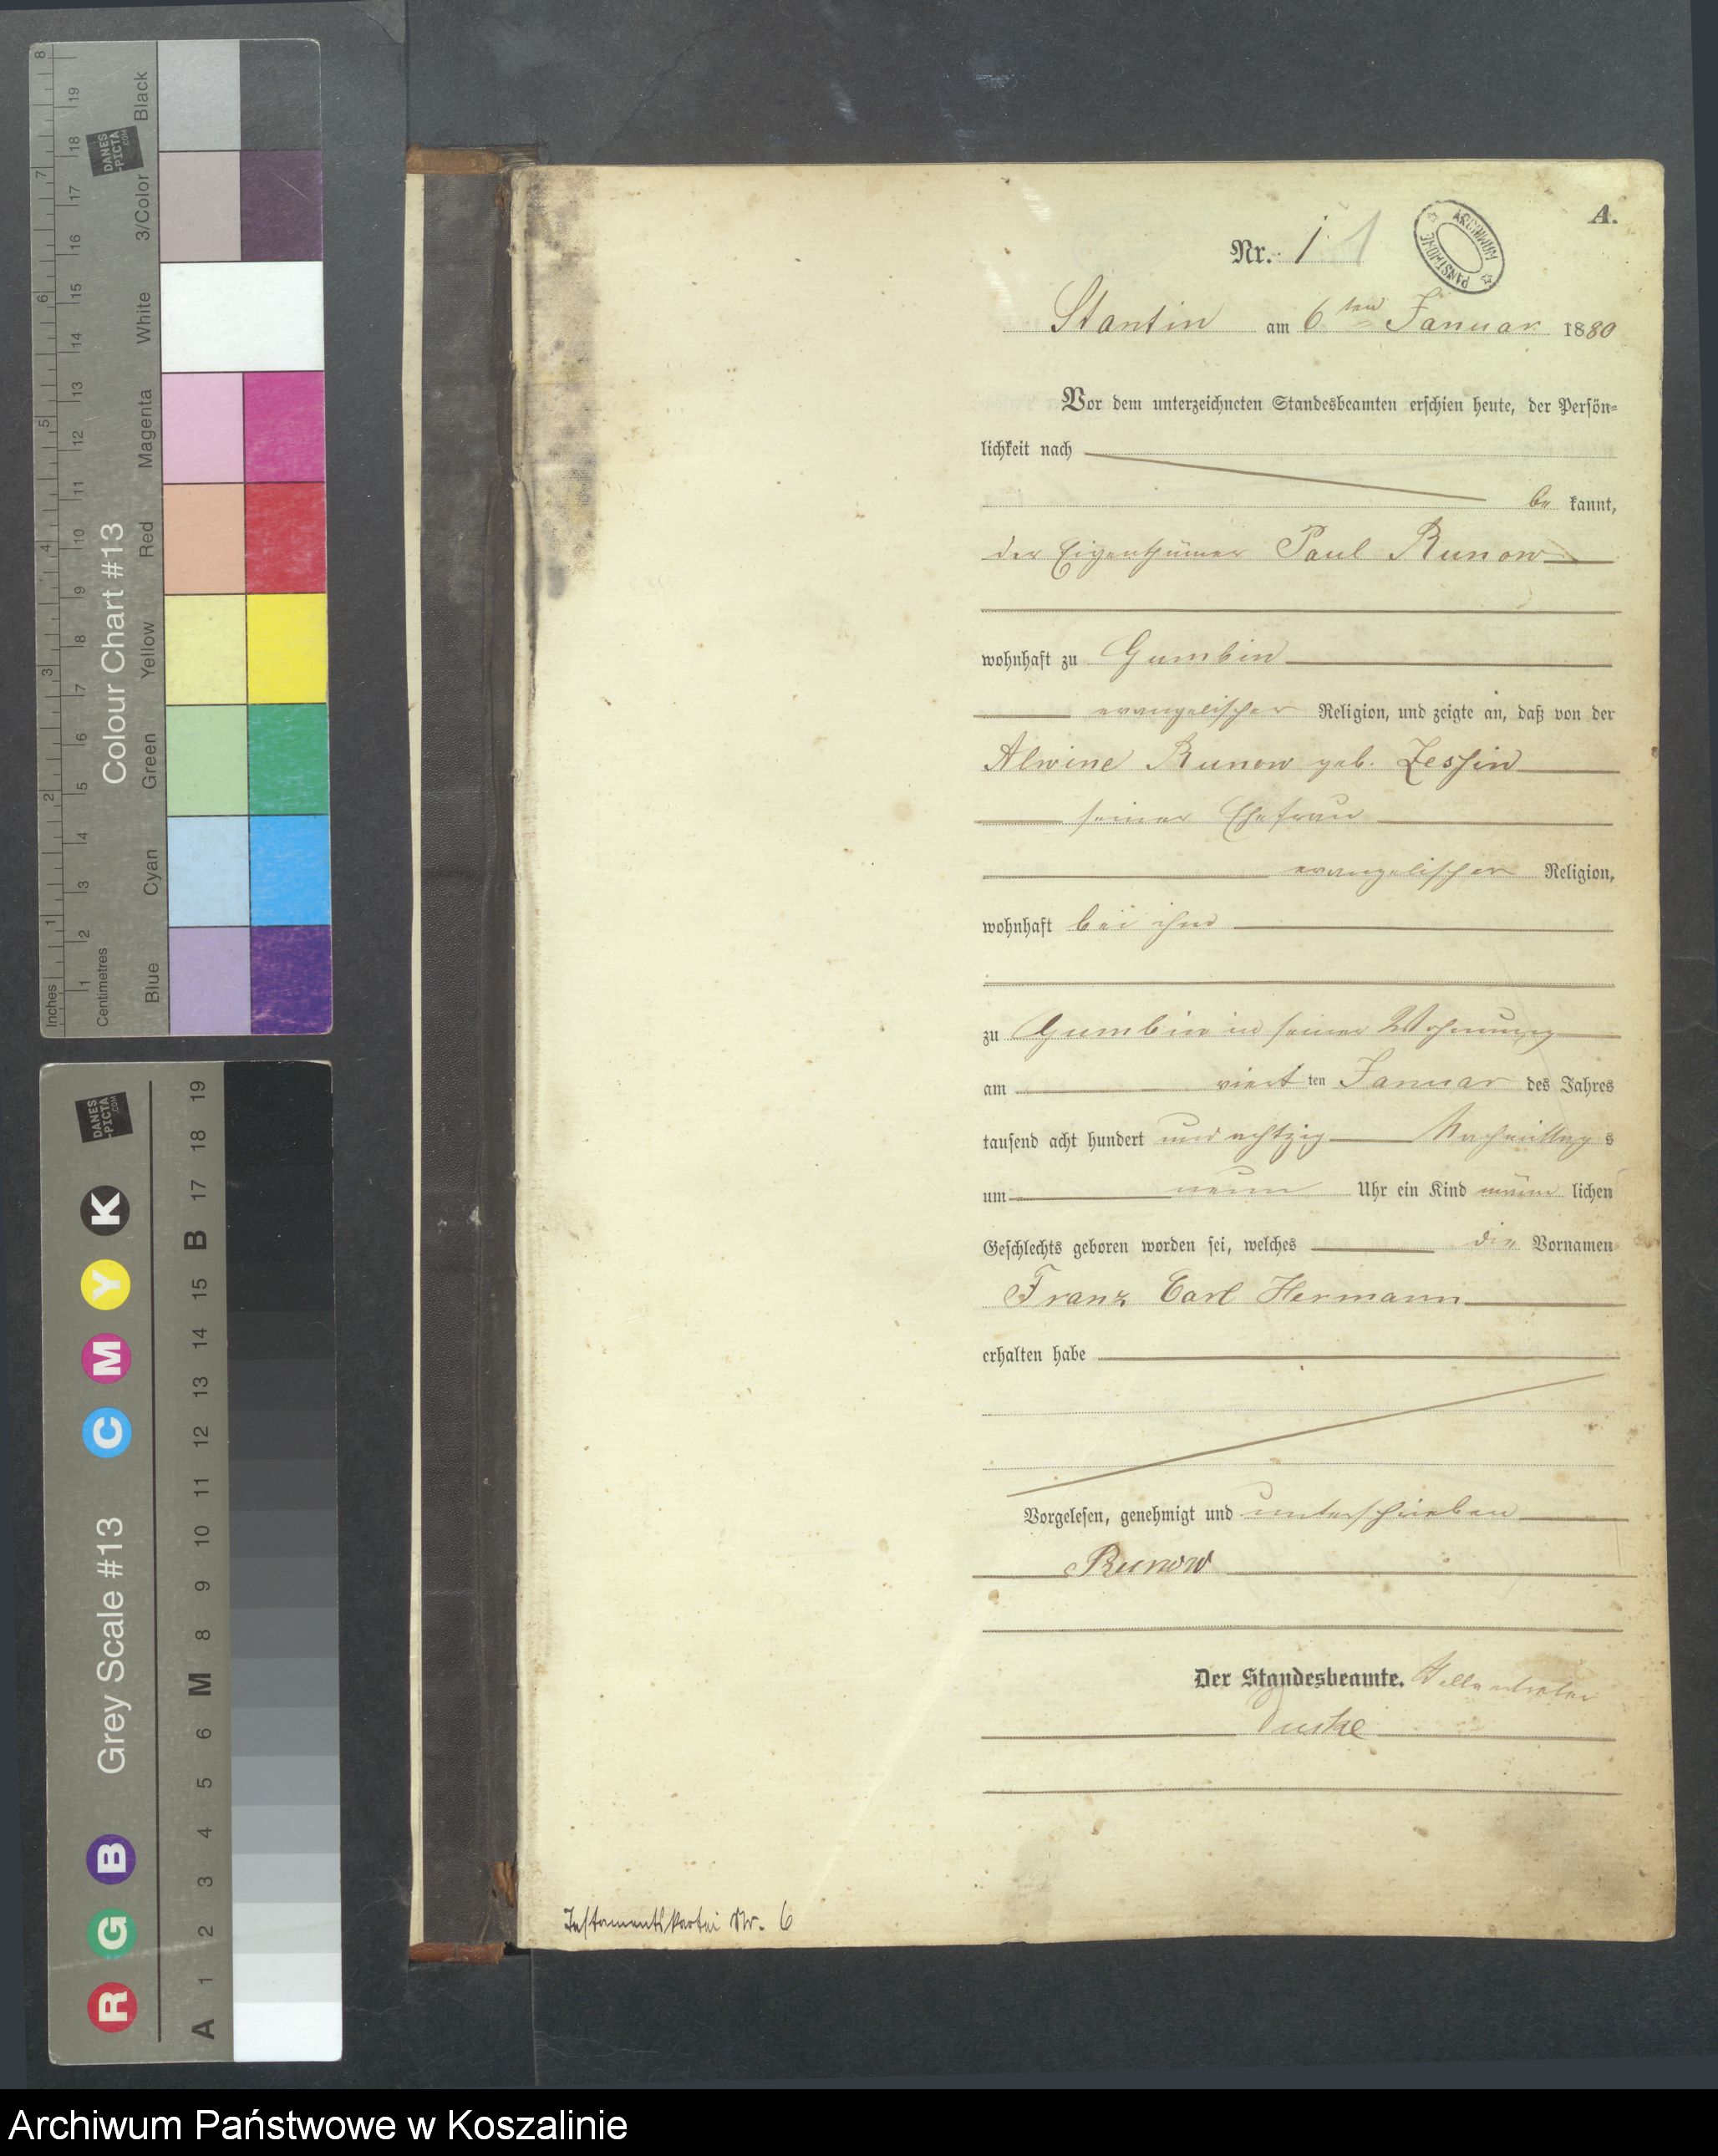 A.
Nr. 1 1
ARCHIWUM PAŃSTWOWE
Stantin am 6ten Januar 1880
Vor dem unterzeichneten Standesbeamten erschien heute, der Persön-
lichkeit nach
be kannt,
der Eigenthümer Paul Runow
wohnhaft zu Gumbin
evangelischer Religion, und zeigte an, daß von der
Alwine Runow geb. Zessin
seiner Ehefrau
evangelischer Religion,
wohnhaft bei ihm
zu Gumbin in seiner Wohnung
am viert ten Januar des Jahres
tausend acht hundert und achtzig Nachmittag s
um neun Uhr ein Kind männ lichen
Geschlechts geboren worden sei, welches die Vornamen
Franz Carl Hermann
erhalten habe
Vorgelesen, genehmigt und unterschrieben
Runow
Der Standesbeamte.
Testamentskartei Nr. 6
Inches 1 2 3 4 5 6 7 8
Centimetres 1 2 3 4 5 6 7 8 9 10 11 12 13 14 15 16 17 18 19
Colour Chart #13
Blue Cyan Green Yellow Red Magenta White 3/Color Black
DANES
-PICTA
.COM
Grey Scale #13
R G B C M Y K
A 1 2 3 4 5 6 M 8 9 10 11 12 13 14 15 B 17 18 19
DANES
-PICTA
.COM
Archiwum Państwowe w Koszalinie